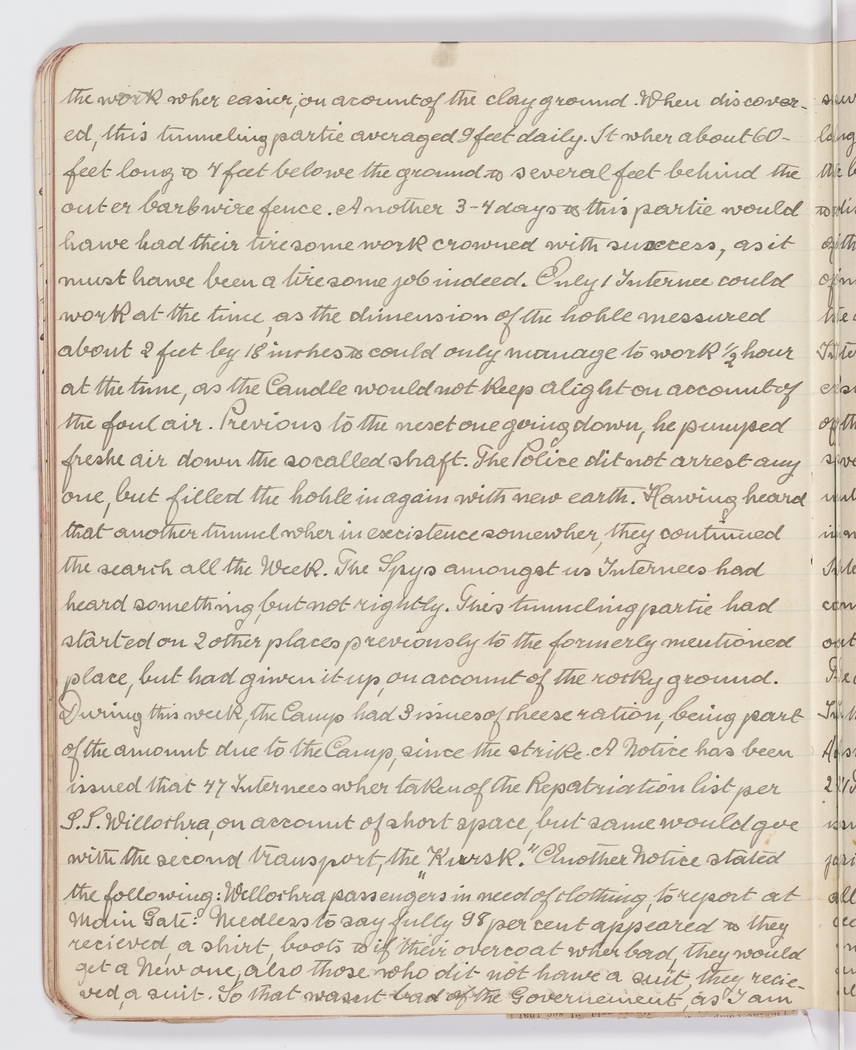 the work wher easier, on acount of the clay ground. When discover-
ed, this tunneling partie averaged 9 feet daily. It wher about 60-
feet long & 4 feet belowe the ground & several feet behind the
outer barbwire fence. Another 3-4 days & this partie would
hawe had their tiresome work crowned with suxcess, as it
must hawe been a tiresome job indeed. Only 1 Internee could
work at the time, as the dimension of the hohle messured
about 2 feet by 18 inches & could only manage to work ½ hour
at the time, as the Candle would not keep alight on account of
the foul air. Previous to the nesct one going down, he pumped
freshe air down the socalled shaft. The Police dit not arrest any
one, but filled the hohle in again with new earth. Hawing heard
that another tunnel wher in excistence somewher, they continued
the search all the Week. The Spys amongst us Internees had
heard something, but not rightly. This tunneling partie had
started on 2 other places previously to the formerly mentioned
place, but had given it up, on account of the rocky ground.
During this week, the Camp had 3 issues of cheese ration, being part
of the amount due to the Camp, since the strike. A Notice has been
issued that 47 Internees wher taken of the Repatriation list per
S.S. Willochra, on account of short space, but same would goe
with the second transport, the "Kursk." Another Notice stated
the following: Willochra passengers in need of clothing, to report at
Main Gate." Needless to say fully 98 per cent appeared & they
recieved, a shirt, boots & if their overcoat wher bad, they would
get a New one, also those who dit not hawe a suit, they recie-
ved, a suit. So that wasent bad of the Governement, as I am